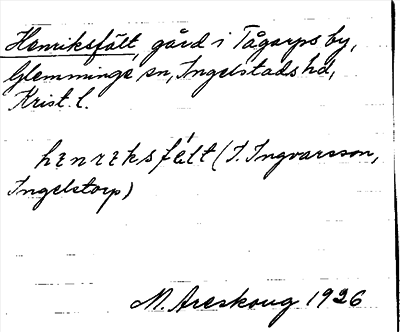 Henriksfält, gård i Tågarps by,
Glemminge sn, Ingelstads hd,
Krist. l.
henriksfélt (I. Ingvarsson,
Ingelstorp)
M. Areskoug 1926